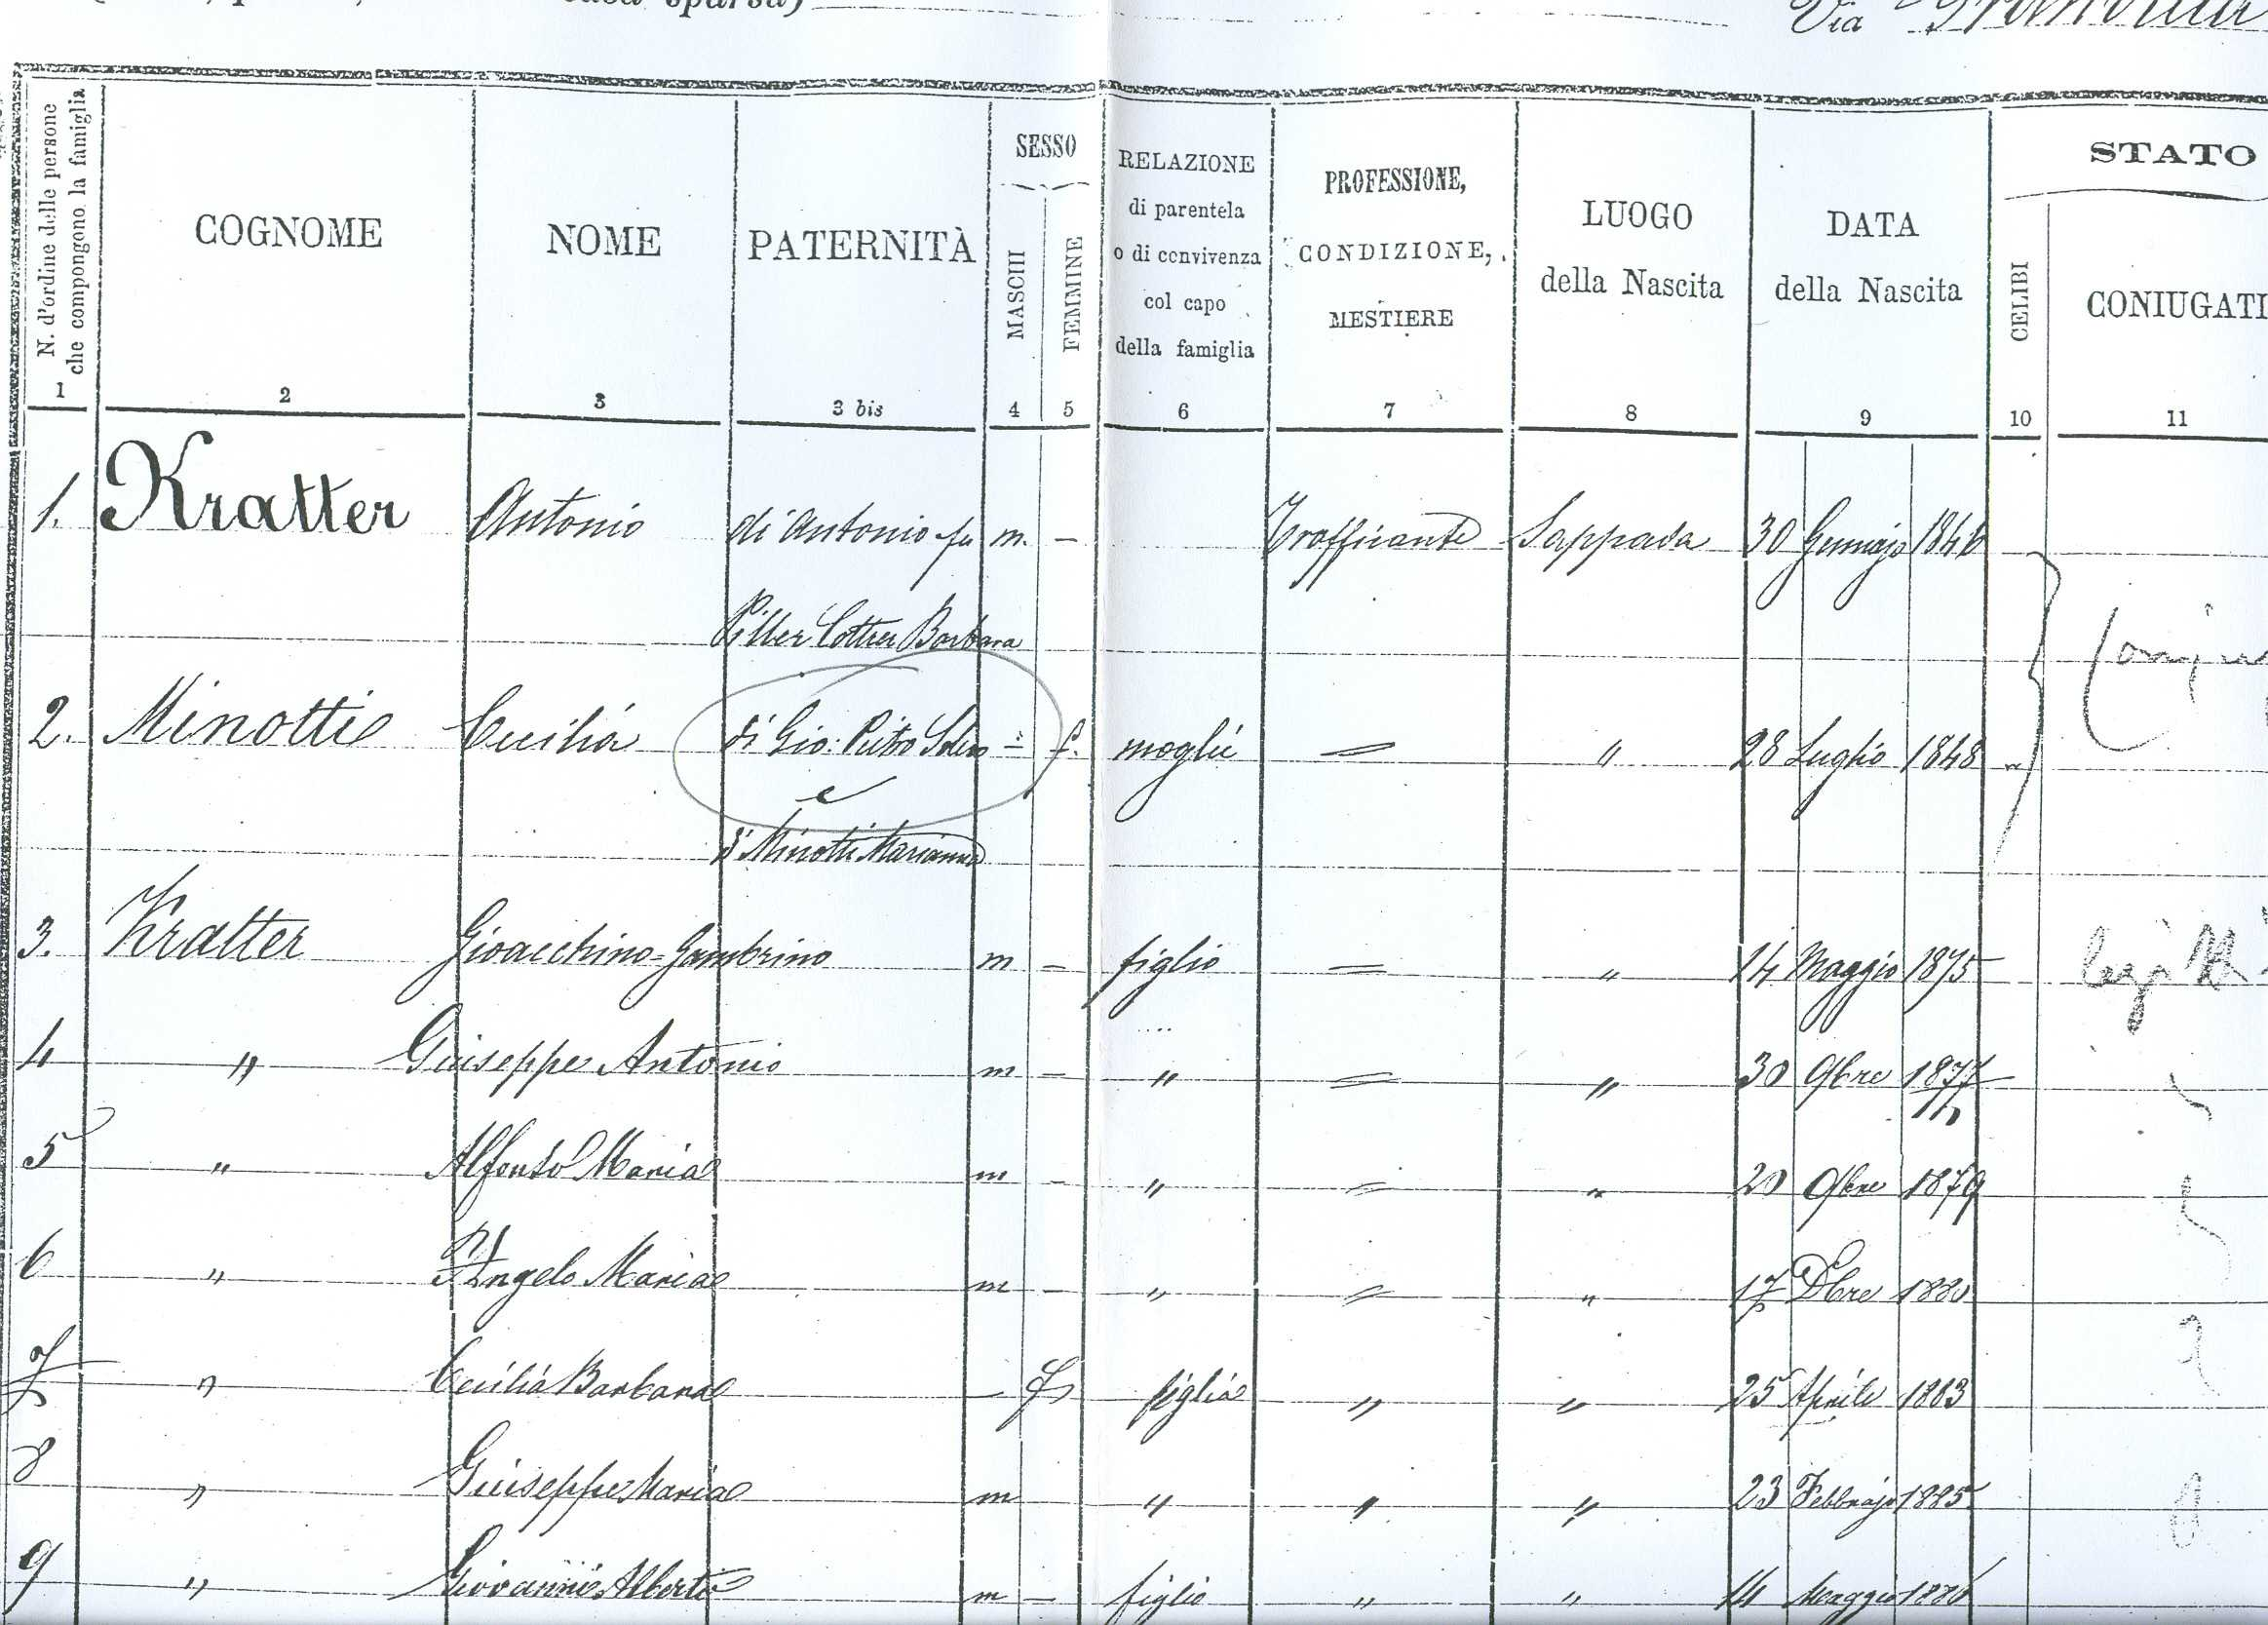 casa sparsa)
Via
N. d'ordine delle persone
che compongono la famiglia
COGNOME
NOME
PATERNITÀ
SESSO
MASCHI
FEMMINE
RELAZIONE
di parentela
o di convivenza
col capo
della famiglia
PROFESSIONE,
CONDIZIONE,
MESTIERE
LUOGO
della Nascita
DATA
della Nascita
STATO
CELIBI
CONIUGATI
1 2 3 3 bis 4 5 6 7 8 9 10 11
1. Kratter Antonio di Antonio fu m. — Trafficante Sappada 30 Gennajo 1846
Piller Cottrer Barbara
2. Minotti Cecilia di Gio: Pietro Solero = f. moglie = " 28 Luglio 1848 "
e
di Minotti Marianna
3. Kratter Gioacchino=Gambrino m — figlio = " 14 Maggio 1875
4 " Giuseppe Antonio m — " = " 30 9bre 1877
5 " Alfonso Maria m — " = " 20 9bre 1879
6 " Angelo Maria m — " = " 17 Dbre 1880
7 " Cecilia Barbara — f figlia " " 25 Aprile 1883
8 " Giuseppe Maria m " " " 23 Febbrajo 1885
9 " Giovanni Alberto m — figlio " " 14 Maggio 1886